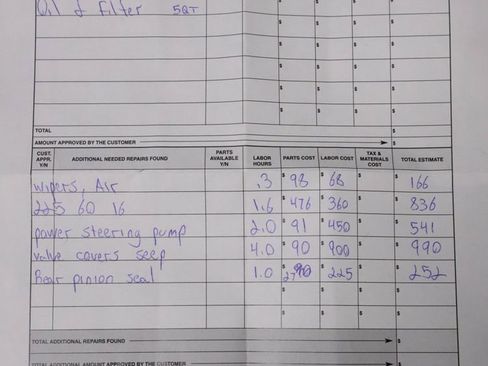 Oil & Filter 5QT
TOTAL
AMOUNT APPROVED BY THE CUSTOMER $
CUST. APPR. Y/N ADDITIONAL NEEDED REPAIRS FOUND PARTS AVAILABLE Y/N LABOR HOURS PARTS COST LABOR COST TAX & MATERIALS COST TOTAL ESTIMATE
Wipers, Air .3 $ 98 $ 68 $ $ 166
225 60 16 1.6 $ 476 $ 360 $ $ 836
power steering pump 2.0 $ 91 $ 450 $ $ 541
valve covers seep 4.0 $ 90 $ 900 $ $ 990
Rear pinion seal 1.0 $ 27 $ 225 $ $ 252
TOTAL ADDITIONAL REPAIRS FOUND $
TOTAL ADDITIONAL AMOUNT APPROVED BY THE CUSTOMER